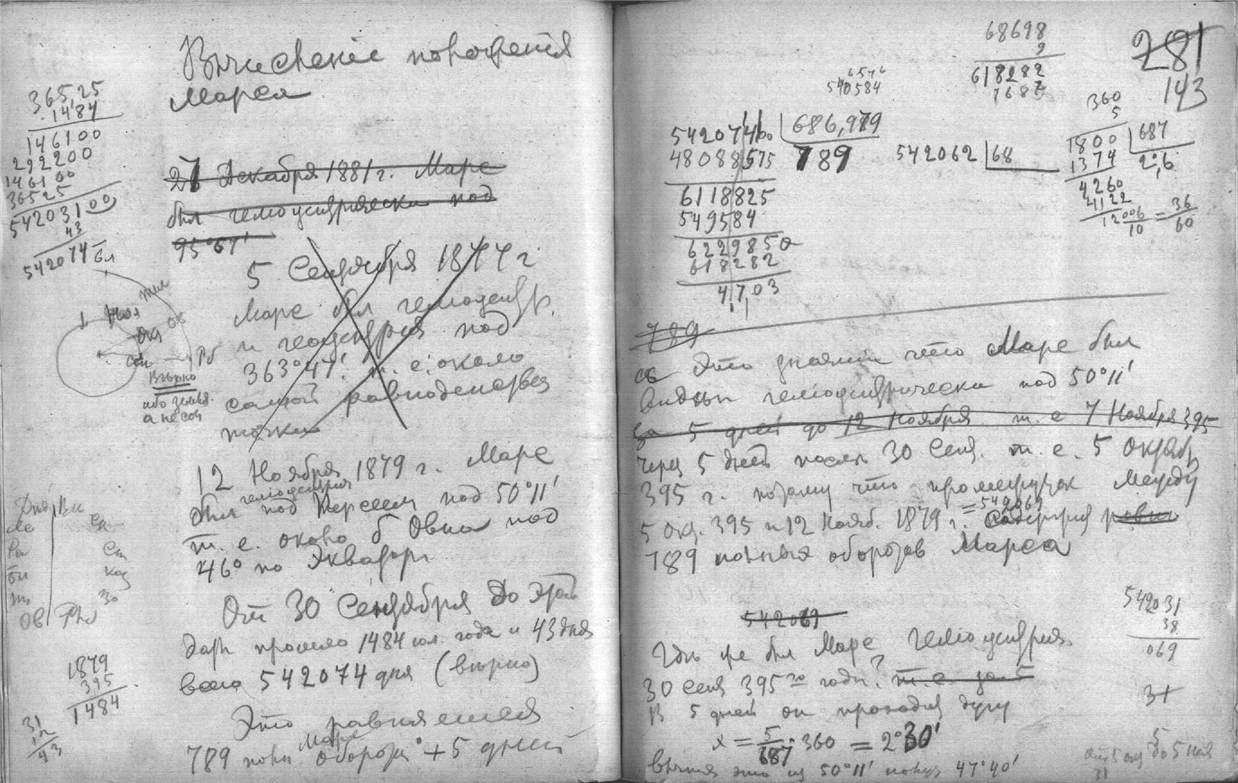 Вычисленіе положенія
Марса
36525
1484
146100
292200
146100
36525
5420310 0
43
542074
27 Декабря 1881 г. Марс
был гелиоцентрически под
95°67'
5 Сентября 1877 г
Марс был гелиоцентр.
и геоцентрич под
363°47' т. е. около
самой равноденств
точки
Вѣрно
ибо земля
а не солн
12 Ноября 1879 г. Марс
гелиоцентрич
был под Персеем под 50°11'
т. е. около б Овна под
46° по Экватору
От 30 Сентября до этой
даты прошло 1484 юл. года и 43 дня
всего 542074 дня (вѣрно)
Это равняется
Марса
789 полн оборота + 5 дней
1879
395
1484
31
12
43
281
143
68698
9
618282
7687
6546
540584
54207400 686,979
48088575 789
6118825
549584
6229850
618282
4703
542062 68
360
5
1800 687
1374 2,6
4260
4122
12006/10 = 36/60
789
Это значит что Марс был
видим гелиоцентрически под 50°11'
за 5 дней до 12 Ноября т. е. 7 Ноября 395
через 5 дней послѣ 30 Сент. т. е. 5 Октяб
395 г. потому что промежуток между
= 542069
5 Окт. 395 и 12 Нояб. 1879 г. Содержит ровно
789 полных оборотов Марса
542069
542031
38
069
Где же был Марс гелиоцентрич.
30 Сент 395го года? т. е. за 5
В 5 дней он проходил дугу
x = 5/687 · 360 = 2°30'
вычтя это из 50°11' получ 47°40'